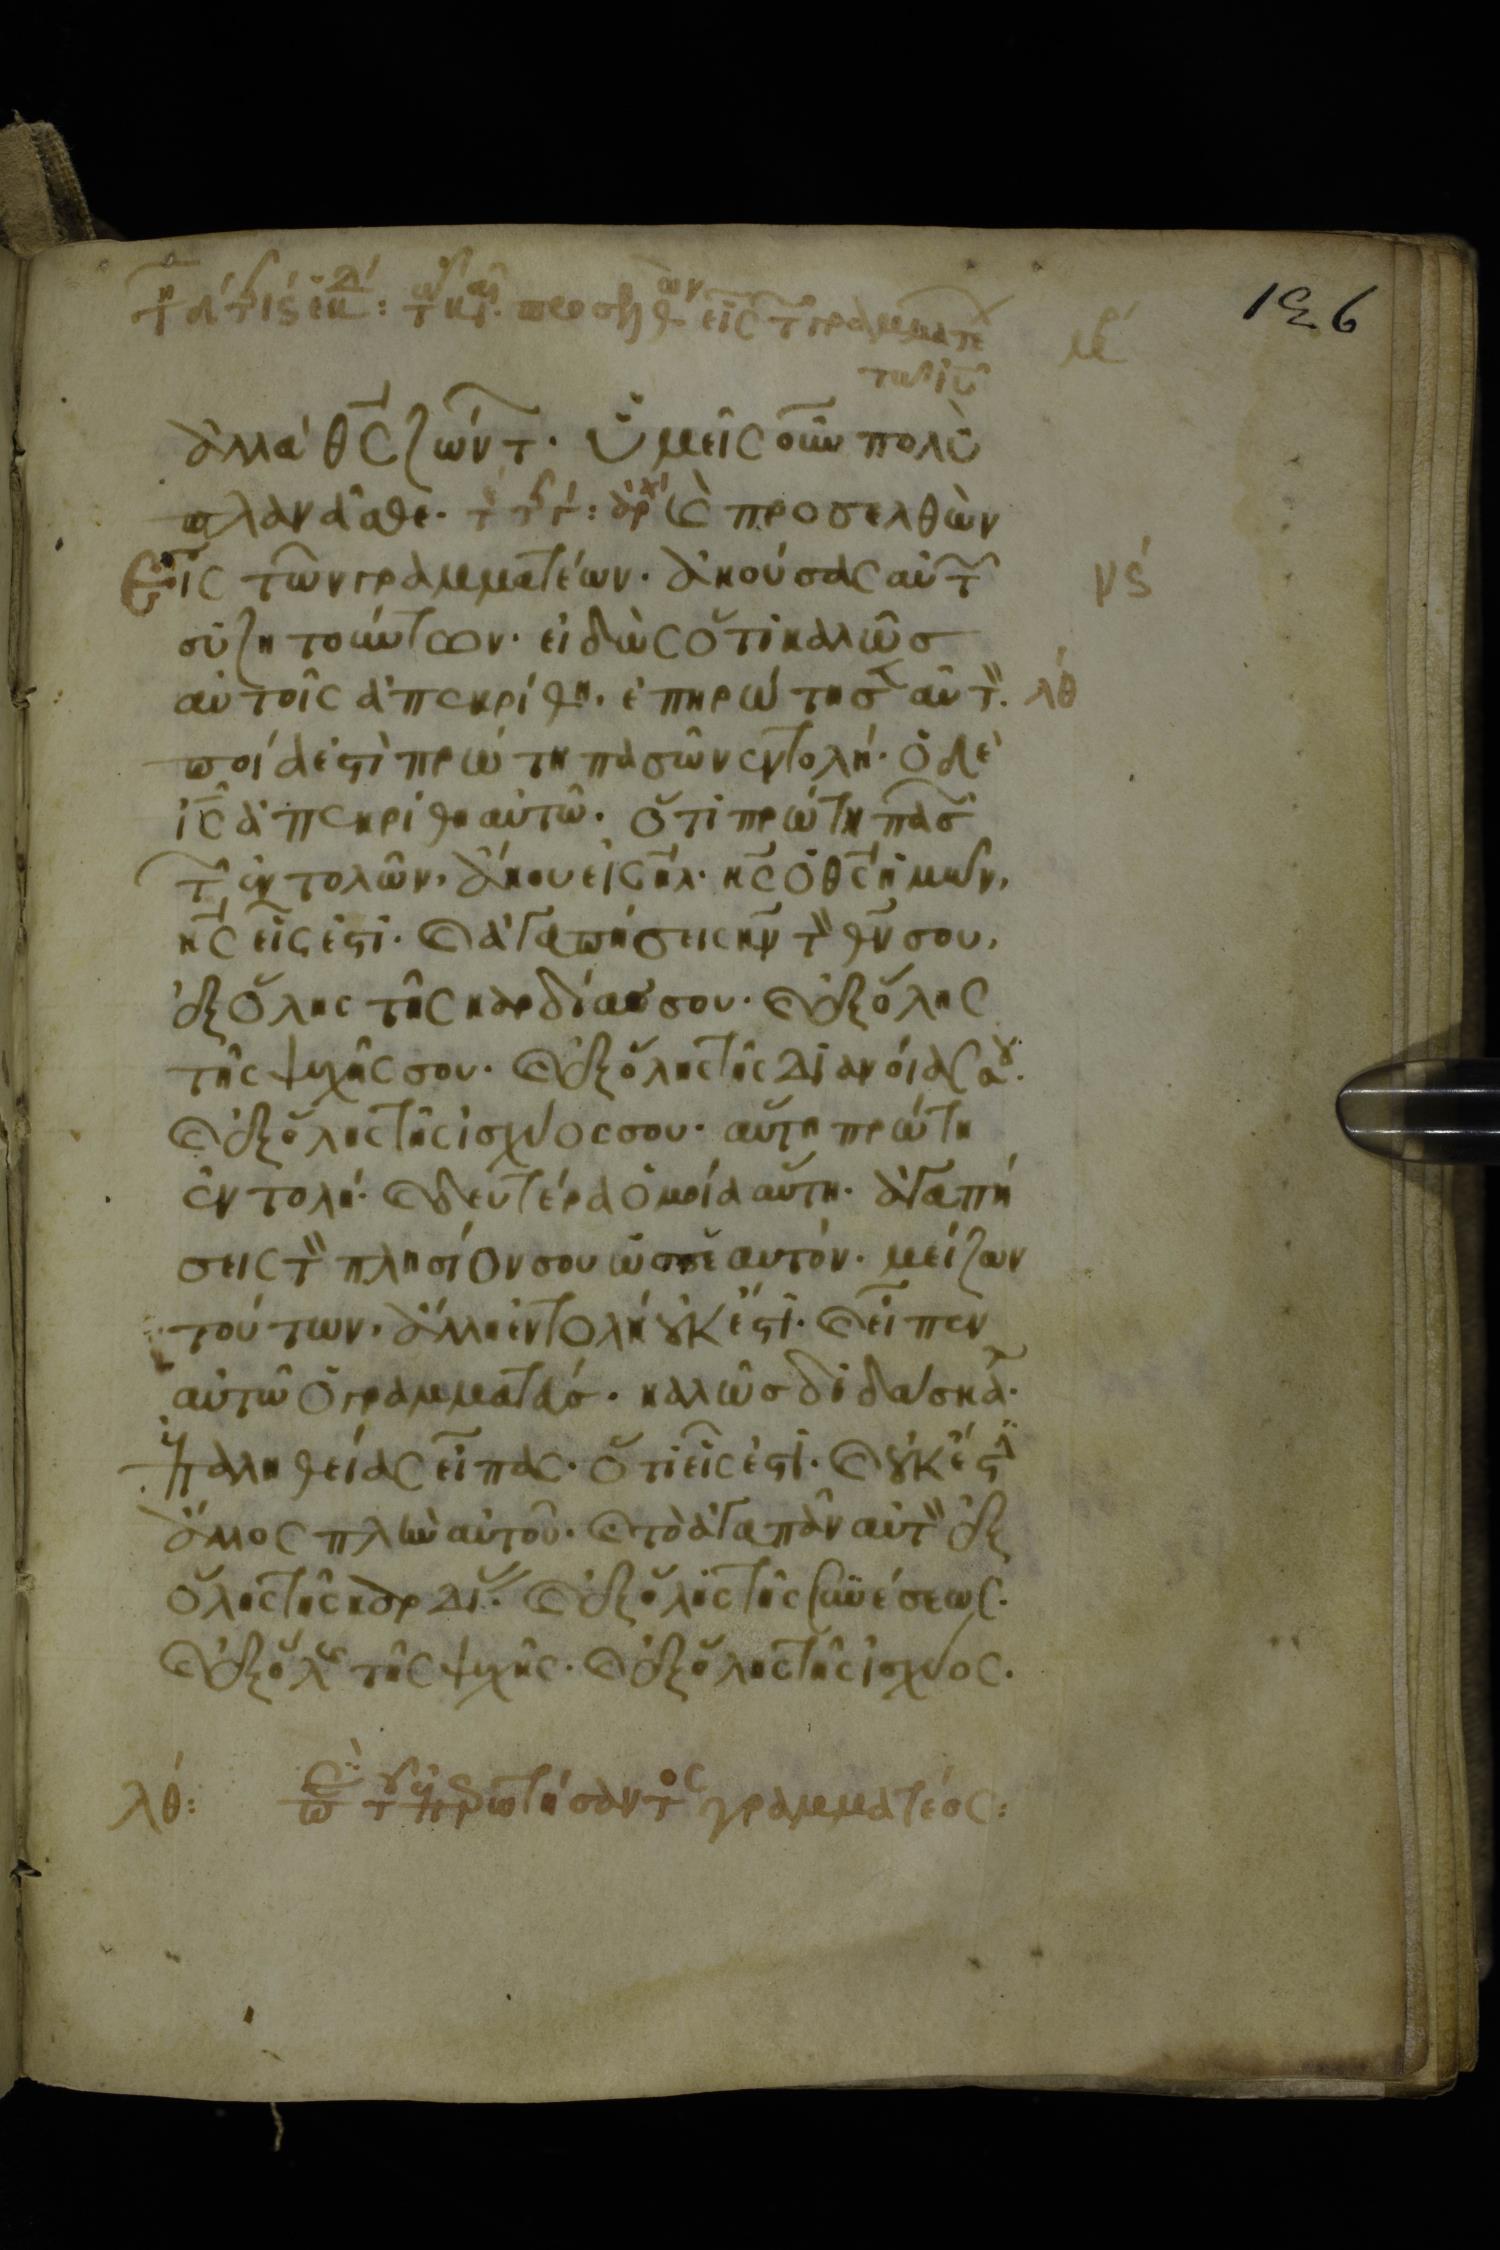 196
εἷς τ γραμματε
τω ἰυ
ἀλλὰ θς ζώντ. ὑμεῖς οὖν πολὺ
πλανᾶσθε. τέλ : ἀρχ καὶ προσελθὼν
Εἷς τῶν γραμματέων. ἀκούσας αὐτ
συζητούντων. εἰδὼς ὅτι καλῶσ
αὐτοῖς ἀπεκρίθη. ἐπηρώτησ αὐτ.
ποία ἐστὶ πρώτη πασῶν ἐντολή. ὁ δὲ
ις ἀπεκρίθη αὐτῶ. ὅτι πρώτη πασ
τ ἐντολῶν, ἄκουε ισηλ. κς ὁ θς ἡμων,
κς εἷς ἐστι. καὶ ἀγαπήσεις κν τ θν σου,
ἐξ ὅλης τῆς καρδίας σου. καὶ ἐξ ὅλης
τῆς ψυχῆς σου. καὶ ἐξ ὅλης τῆς διανοίας σου.
καὶ ἐξ ὅλης τῆς ἰσχύος σου. αὕτη πρώτη
ἐντολή. καὶ δευτέρα ὁμοία αὕτη. ἀγαπή
σεις τ πλησίον σου ὡς σεαυτόν. μείζων
τούτων, ἄλλη ἐντολὴ οὐκ ἔστι. καὶ εἶπεν
αὐτῶ ὁ γραμματεύσ. καλῶσ διδάσκα.
ἐπ ἀληθείας εἶπας. ὅτι εἷς ἐστι. καὶ οὐκ ἔστ
ἄλλος πλὴν αὐτοῦ. καὶ τὸ ἀγαπᾶν αὐτ ἐξ
ὅλης τῆς καρδι. καὶ ἐξ ὅλης τῆς συνέσεως.
καὶ ἐξ ὅλ τῆς ψυχῆς. καὶ ἐξ ὅλης τῆς ἰσχύος.
νς
λθ
λθ: περὶ τοῦ ἐπερωτήσαντος γραμματέος: